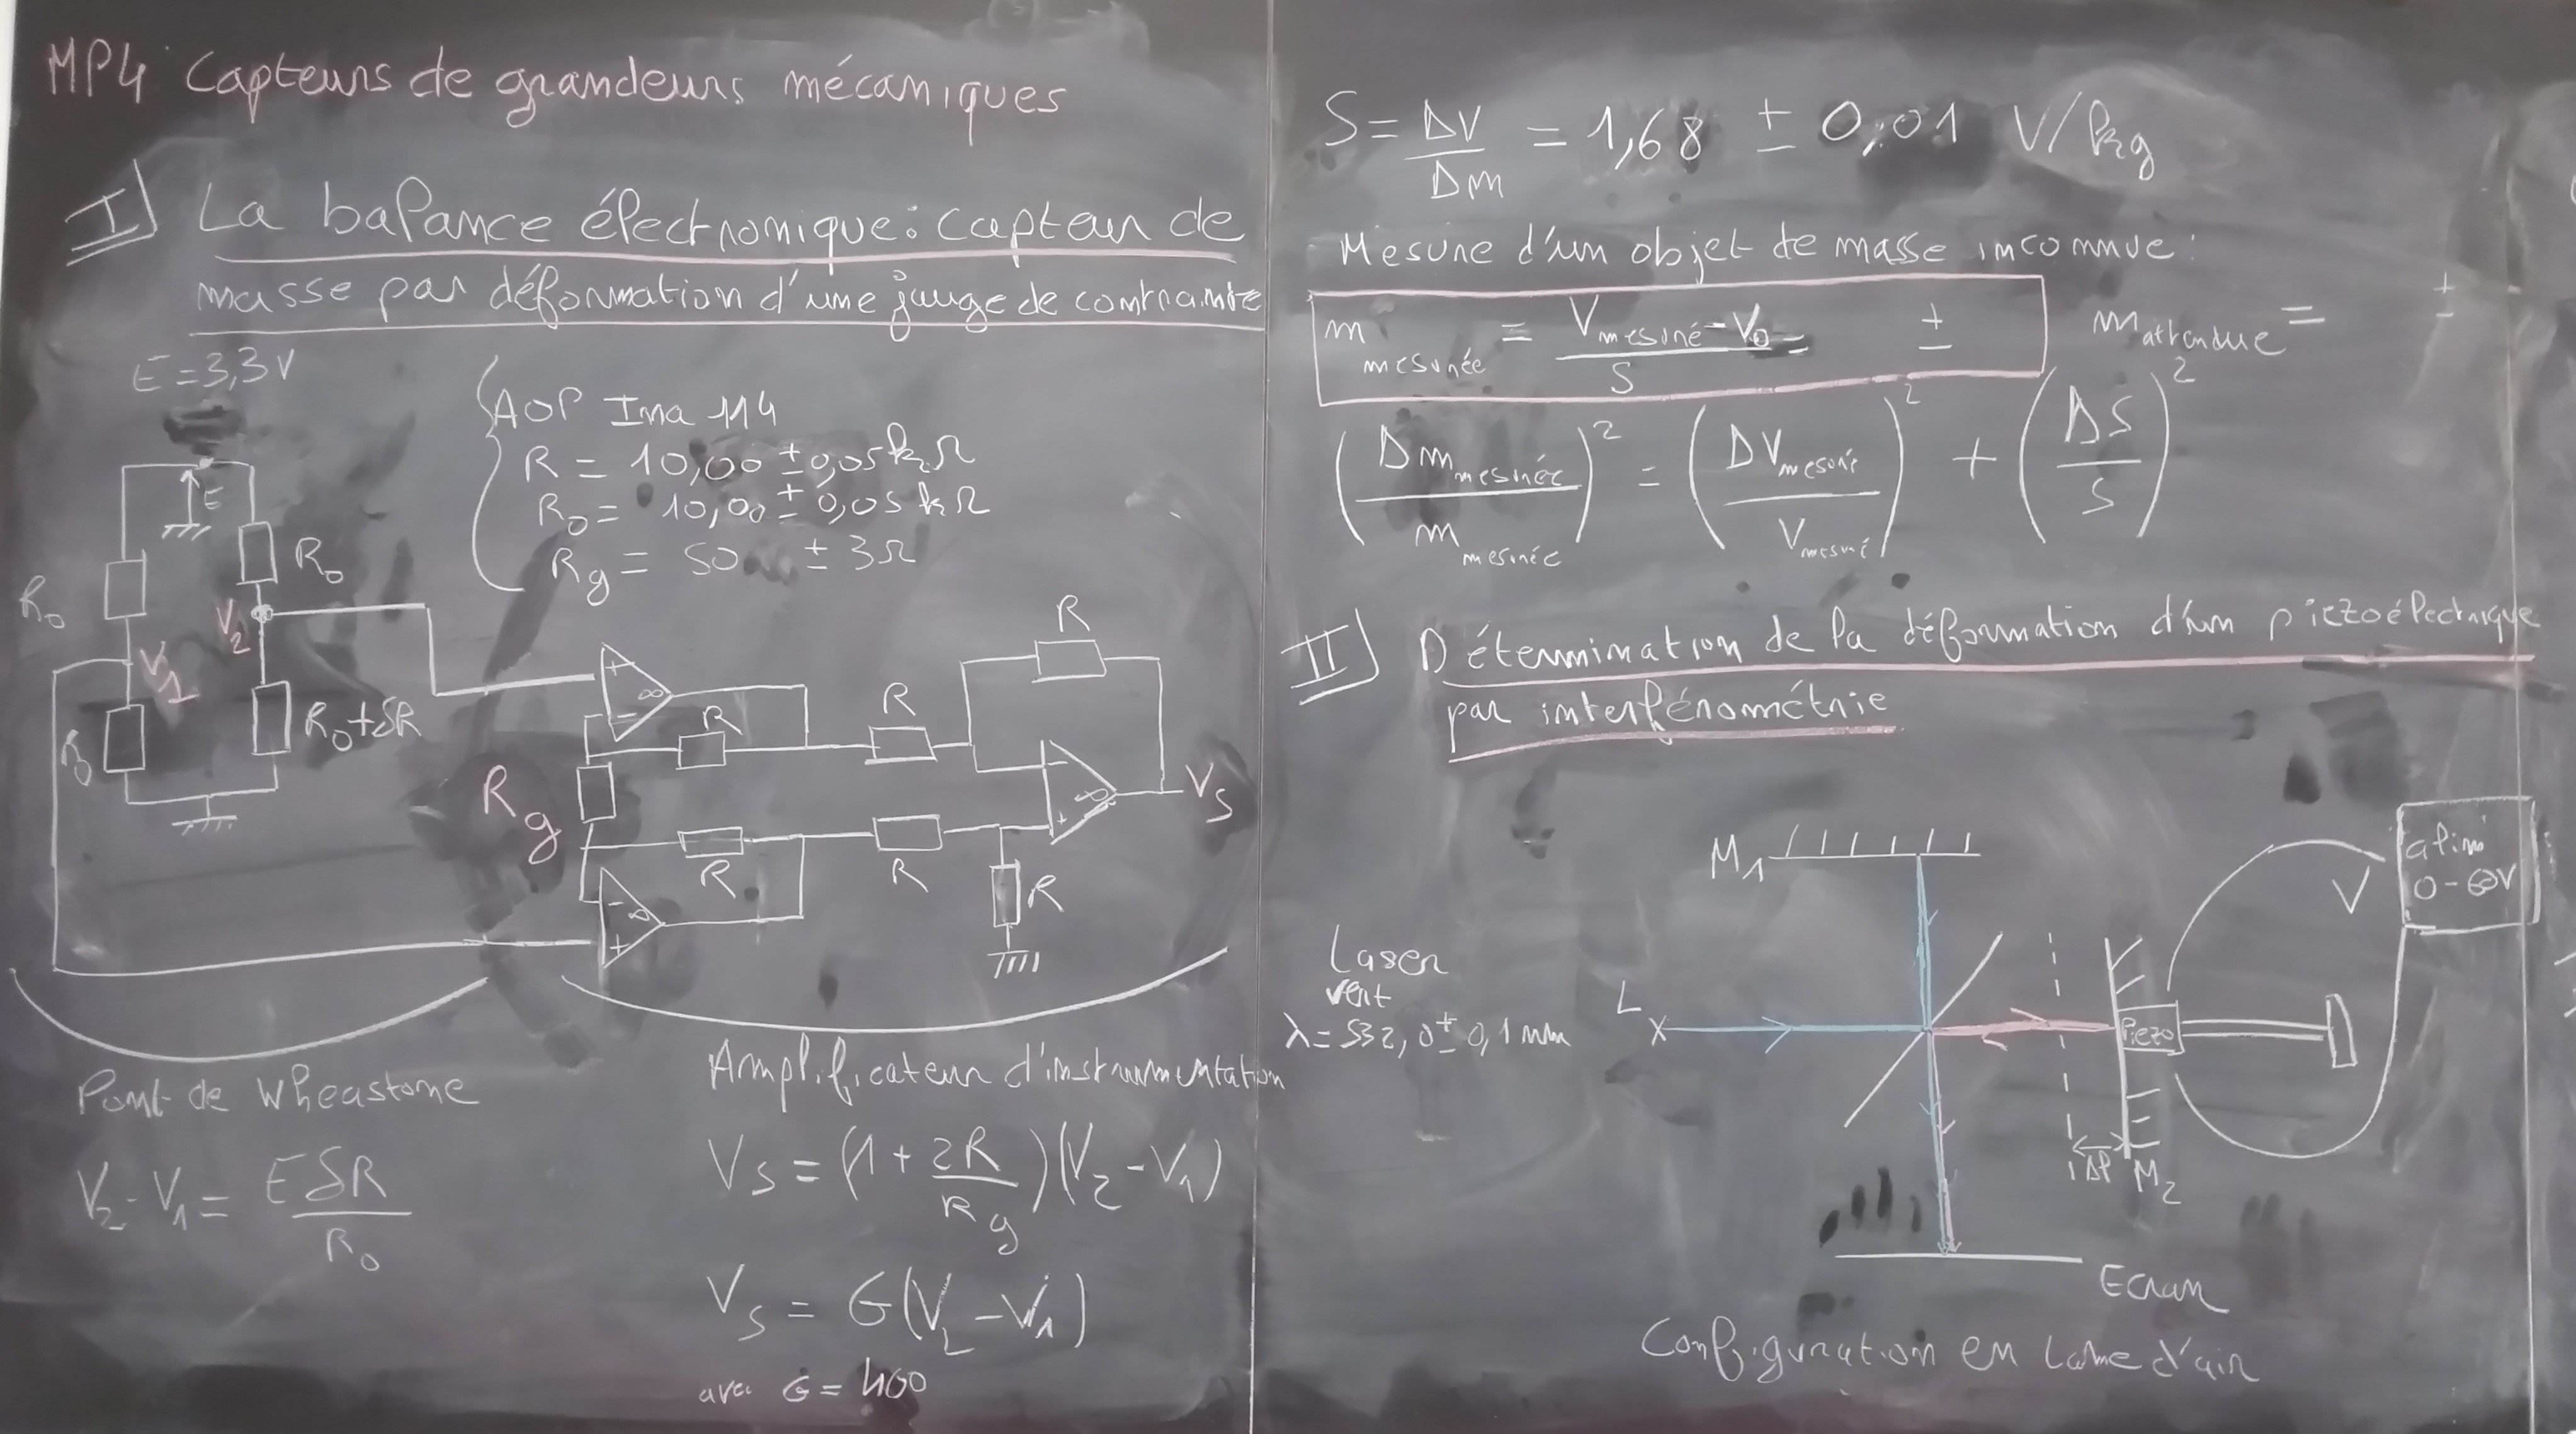 MP4 Capteurs de grandeurs mécaniques
I) La balance électronique : capteur de
masse par déformation d'une jauge de contrainte
E = 3,3 V
AOP Ina 114
R = 10,00 ± 0,05 kΩ
R₀ = 10,00 ± 0,05 kΩ
R_g = 50 ± 3 Ω
E
R₀
R₀
V₁
V₂
R₀
R₀+δR
+
-
∞
R
R
R
R_g
-
+
∞
V_S
R
R
R
-
+
∞
Pont de Wheastone
V₂ - V₁ = EδR / R₀
Amplificateur d'instrumentation
V_S = (1 + 2R/R_g)(V₂ - V₁)
V_S = G(V₂ - V₁)
avec G = 400
S = ΔV/Δm = 1,68 ± 0,01 V/kg
Mesure d'un objet de masse inconnue :
m_mesurée = (V_mesuré - V₀)/S = ±
m_attendue = ±
(Δm_mesurée / m_mesurée)² = (ΔV_mesuré / V_mesuré)² + (ΔS / S)²
II) Détermination de la déformation d'un piezoélectrique
par interférométrie
M₁
alim
0-60V
V
Laser
vert
λ = 532,0 ± 0,1 nm
L
Piezo
Δl
M₂
Ecran
Configuration en Lame d'air